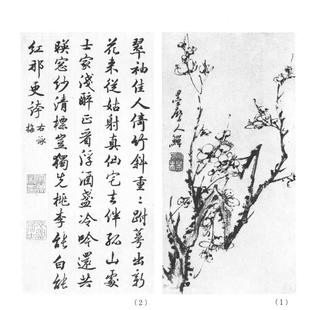 翠袖佳人倚竹斜重〻跗萼出新
花来從姑射真仙宅去伴孤山處
士家淺醉正看浮酒盞冷吟還共
暎窓紗清摽豈獨先桃李能白能
紅那更誇
右咏
梅
(1)
(2)